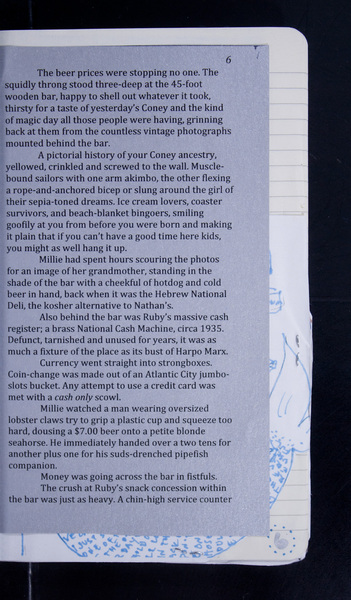 6
The beer prices were stopping no one. The
squidly throng stood three-deep at the 45-foot
wooden bar, happy to shell out whatever it took,
thirsty for a taste of yesterday's Coney and the kind
of magic day all those people were having, grinning
back at them from the countless vintage photographs
mounted behind the bar.
A pictorial history of your Coney ancestry,
yellowed, crinkled and screwed to the wall. Muscle-
bound sailors with one arm akimbo, the other flexing
a rope-and-anchored bicep or slung around the girl of
their sepia-toned dreams. Ice cream lovers, coaster
survivors, and beach-blanket bingoers, smiling
goofily at you from before you were born and making
it plain that if you can't have a good time here kids,
you might as well hang it up.
Millie had spent hours scouring the photos
for an image of her grandmother, standing in the
shade of the bar with a cheekful of hotdog and cold
beer in hand, back when it was the Hebrew National
Deli, the kosher alternative to Nathan's.
Also behind the bar was Ruby's massive cash
register; a brass National Cash Machine, circa 1935.
Defunct, tarnished and unused for years, it was as
much a fixture of the place as its bust of Harpo Marx.
Currency went straight into strongboxes.
Coin-change was made out of an Atlantic City jumbo-
slots bucket. Any attempt to use a credit card was
met with a cash only scowl.
Millie watched a man wearing oversized
lobster claws try to grip a plastic cup and squeeze too
hard, dousing a $7.00 beer onto a petite blonde
seahorse. He immediately handed over a two tens for
another plus one for his suds-drenched pipefish
companion.
Money was going across the bar in fistfuls.
The crush at Ruby's snack concession within
the bar was just as heavy. A chin-high service counter